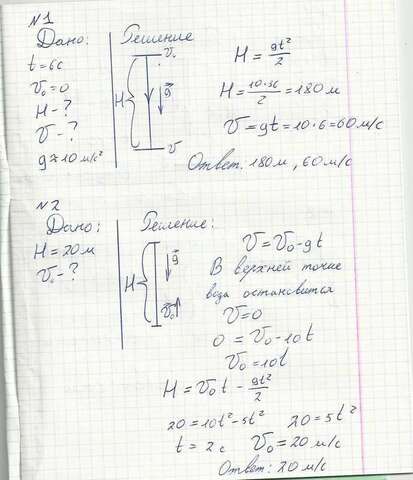 N1
Дано: Решение
t=6c
V₀=0
H-?
V-?
g≈10 м/с²
V₀
H
g
V
H = gt²/2
H = 10·36/2 = 180 м
V = gt = 10·6 = 60 м/с
Ответ. 180 м, 60 м/с
N2
Дано: Решение:
H = 20 м
V₀-?
g
H
V₀
V = V₀ - gt
В верхней точке
вода остановится
V = 0
0 = V₀ - 10t
V₀ = 10t
H = V₀t - gt²/2
20 = 10t² - 5t² 20 = 5t²
t = 2 c V₀ = 20 м/с
Ответ: 20 м/с